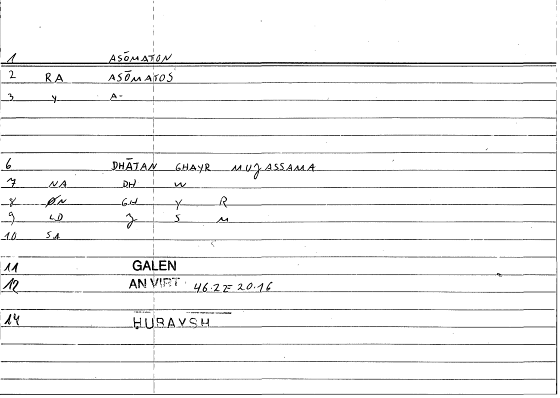 1 ASŌMATON
2 RA ASŌMATOS
3 Y A-
6 DHĀTAN GHAYR MUJASSAMA
7 NA DH W
8 ØN GH Y R
9 LD J S M
10 SA
11 GALEN
12 AN VIRT 46.22 = 20.16
14 HUBAYSH